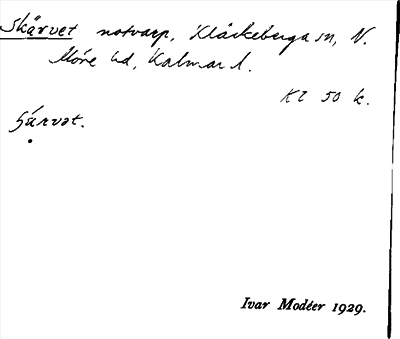 Skärvet notvarp, Kläckeberga sn, N.
Möre hd, Kalmar l.
Kl 50 k.
ʃärvət.
Ivar Modéer 1929.